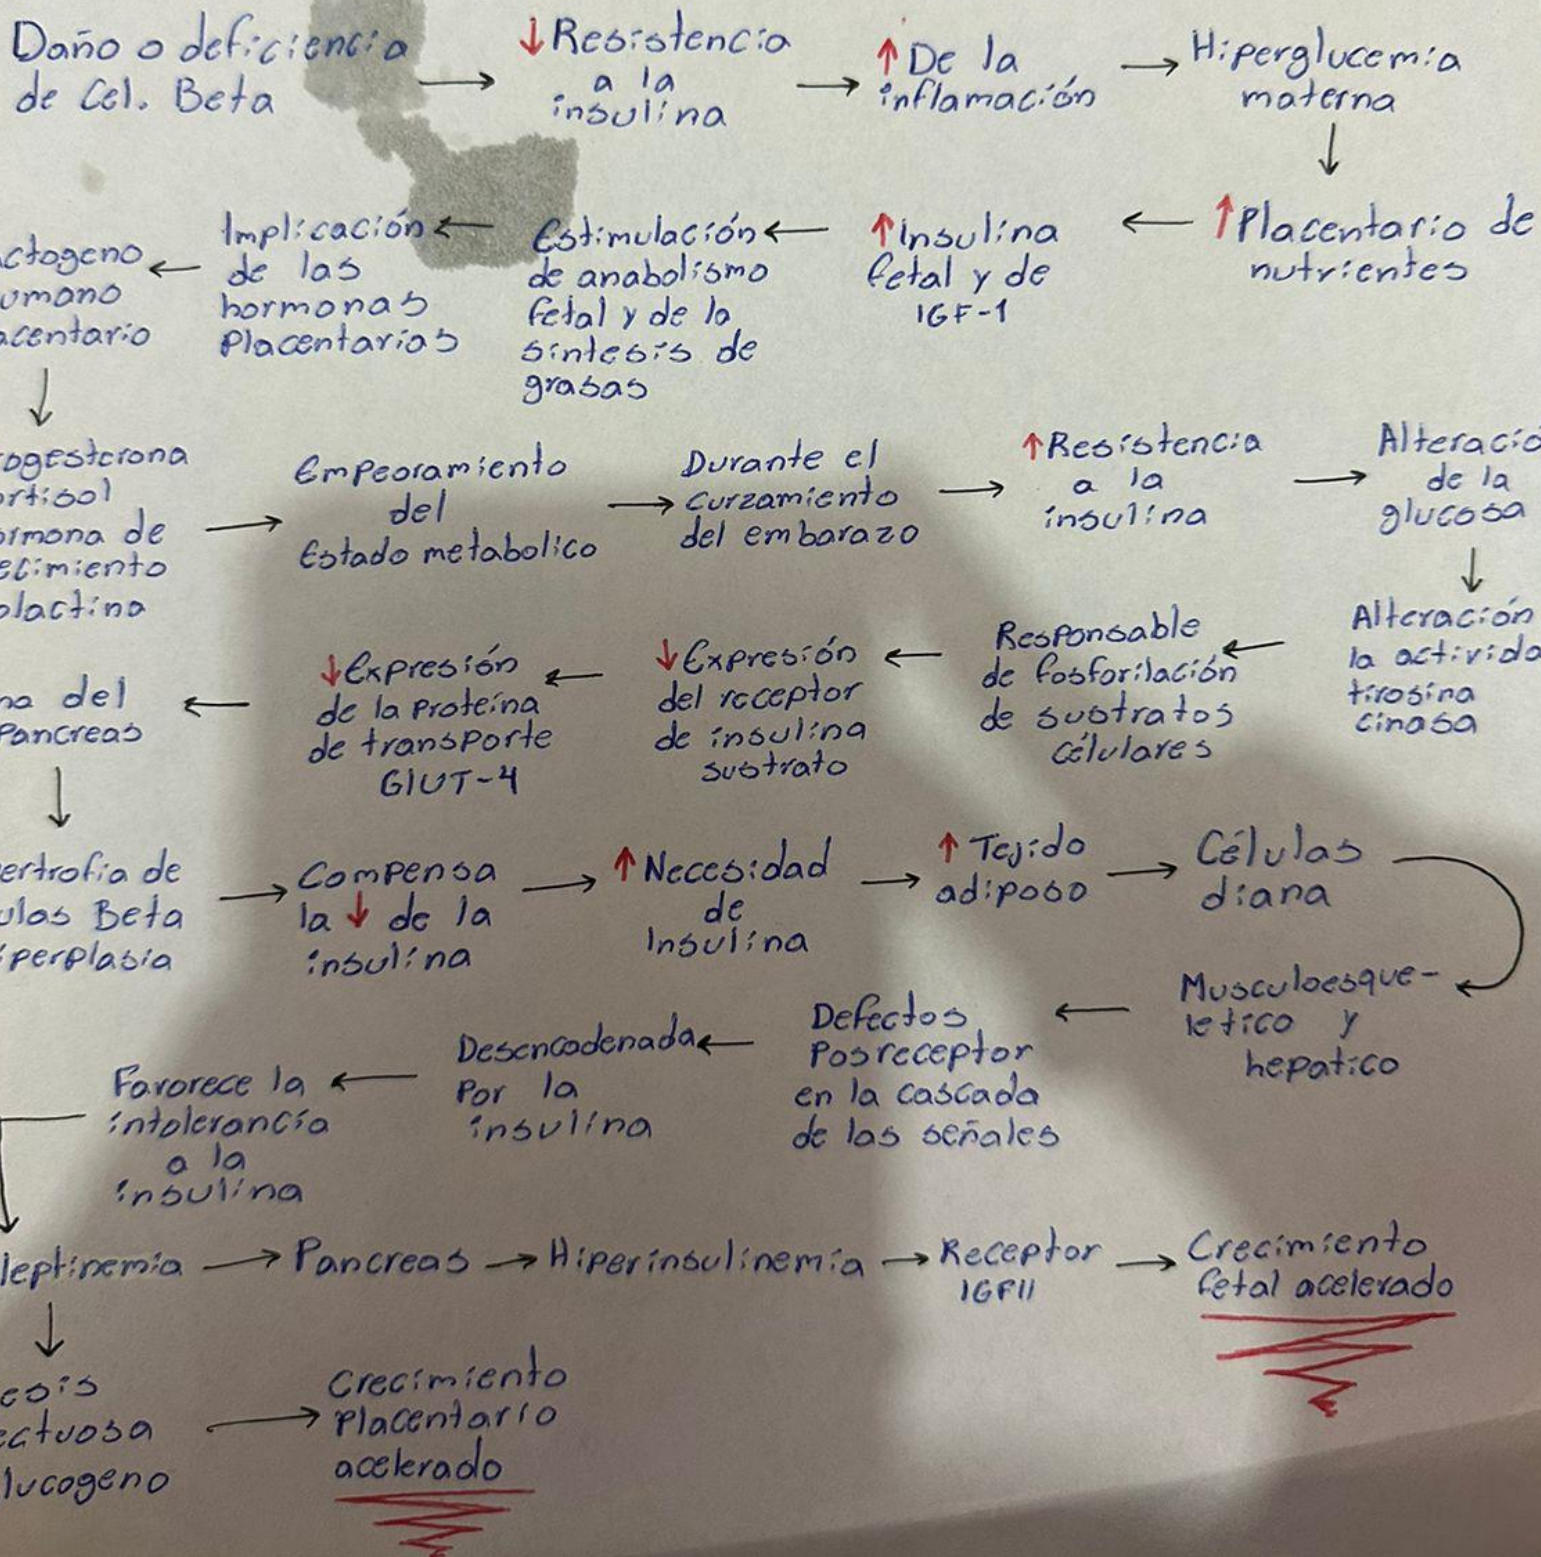 Daño o deficiencia
de Cel. Beta
→
↓Resistencia
a la
insulina
→
↑De la
inflamación
→
Hiperglucemia
materna
↓
↑Placentario de
nutrientes
←
↑Insulina
fetal y de
IGF-1
←
Estimulación
de anabolismo
fetal y de la
síntesis de
grasas
←
Implicación
de las
hormonas
Placentarias
←
ctogeno
umano
acentario
↓
ogesterona
rtisol
rmona de
ecimiento
olactina
→
Empeoramiento
del
Estado metabolico
→
Durante el
curzamiento
del embarazo
→
↑Resistencia
a la
insulina
→
Alteració
de la
glucosa
↓
Alteración
la activida
tirosina
cinasa
←
Responsable
de fosforilación
de sustratos
célulares
←
↓Expresión
del receptor
de insulina
sustrato
←
↓Expresión
de la Proteína
de transporte
GlUT-4
←
na del
Pancreas
↓
ertrofia de
ulas Beta
iperplasia
→
Compensa
la ↓ de la
insulina
→
↑Necesidad
de
Insulina
→
↑Tejido
adiposo
→
Células
diana
Musculoesque-
letico y
hepatico
←
Defectos
Posreceptor
en la cascada
de las señales
←
Desencadenada
Por la
insulina
←
Favorece la
intolerancia
a la
insulina
leptinemia
→
Pancreas
→
Hiperinsulinemia
→
Receptor
IGFII
→
Crecimiento
fetal acelerado
↓
esis
ectuosa
lucogeno
→
Crecimiento
Placentario
acelerado